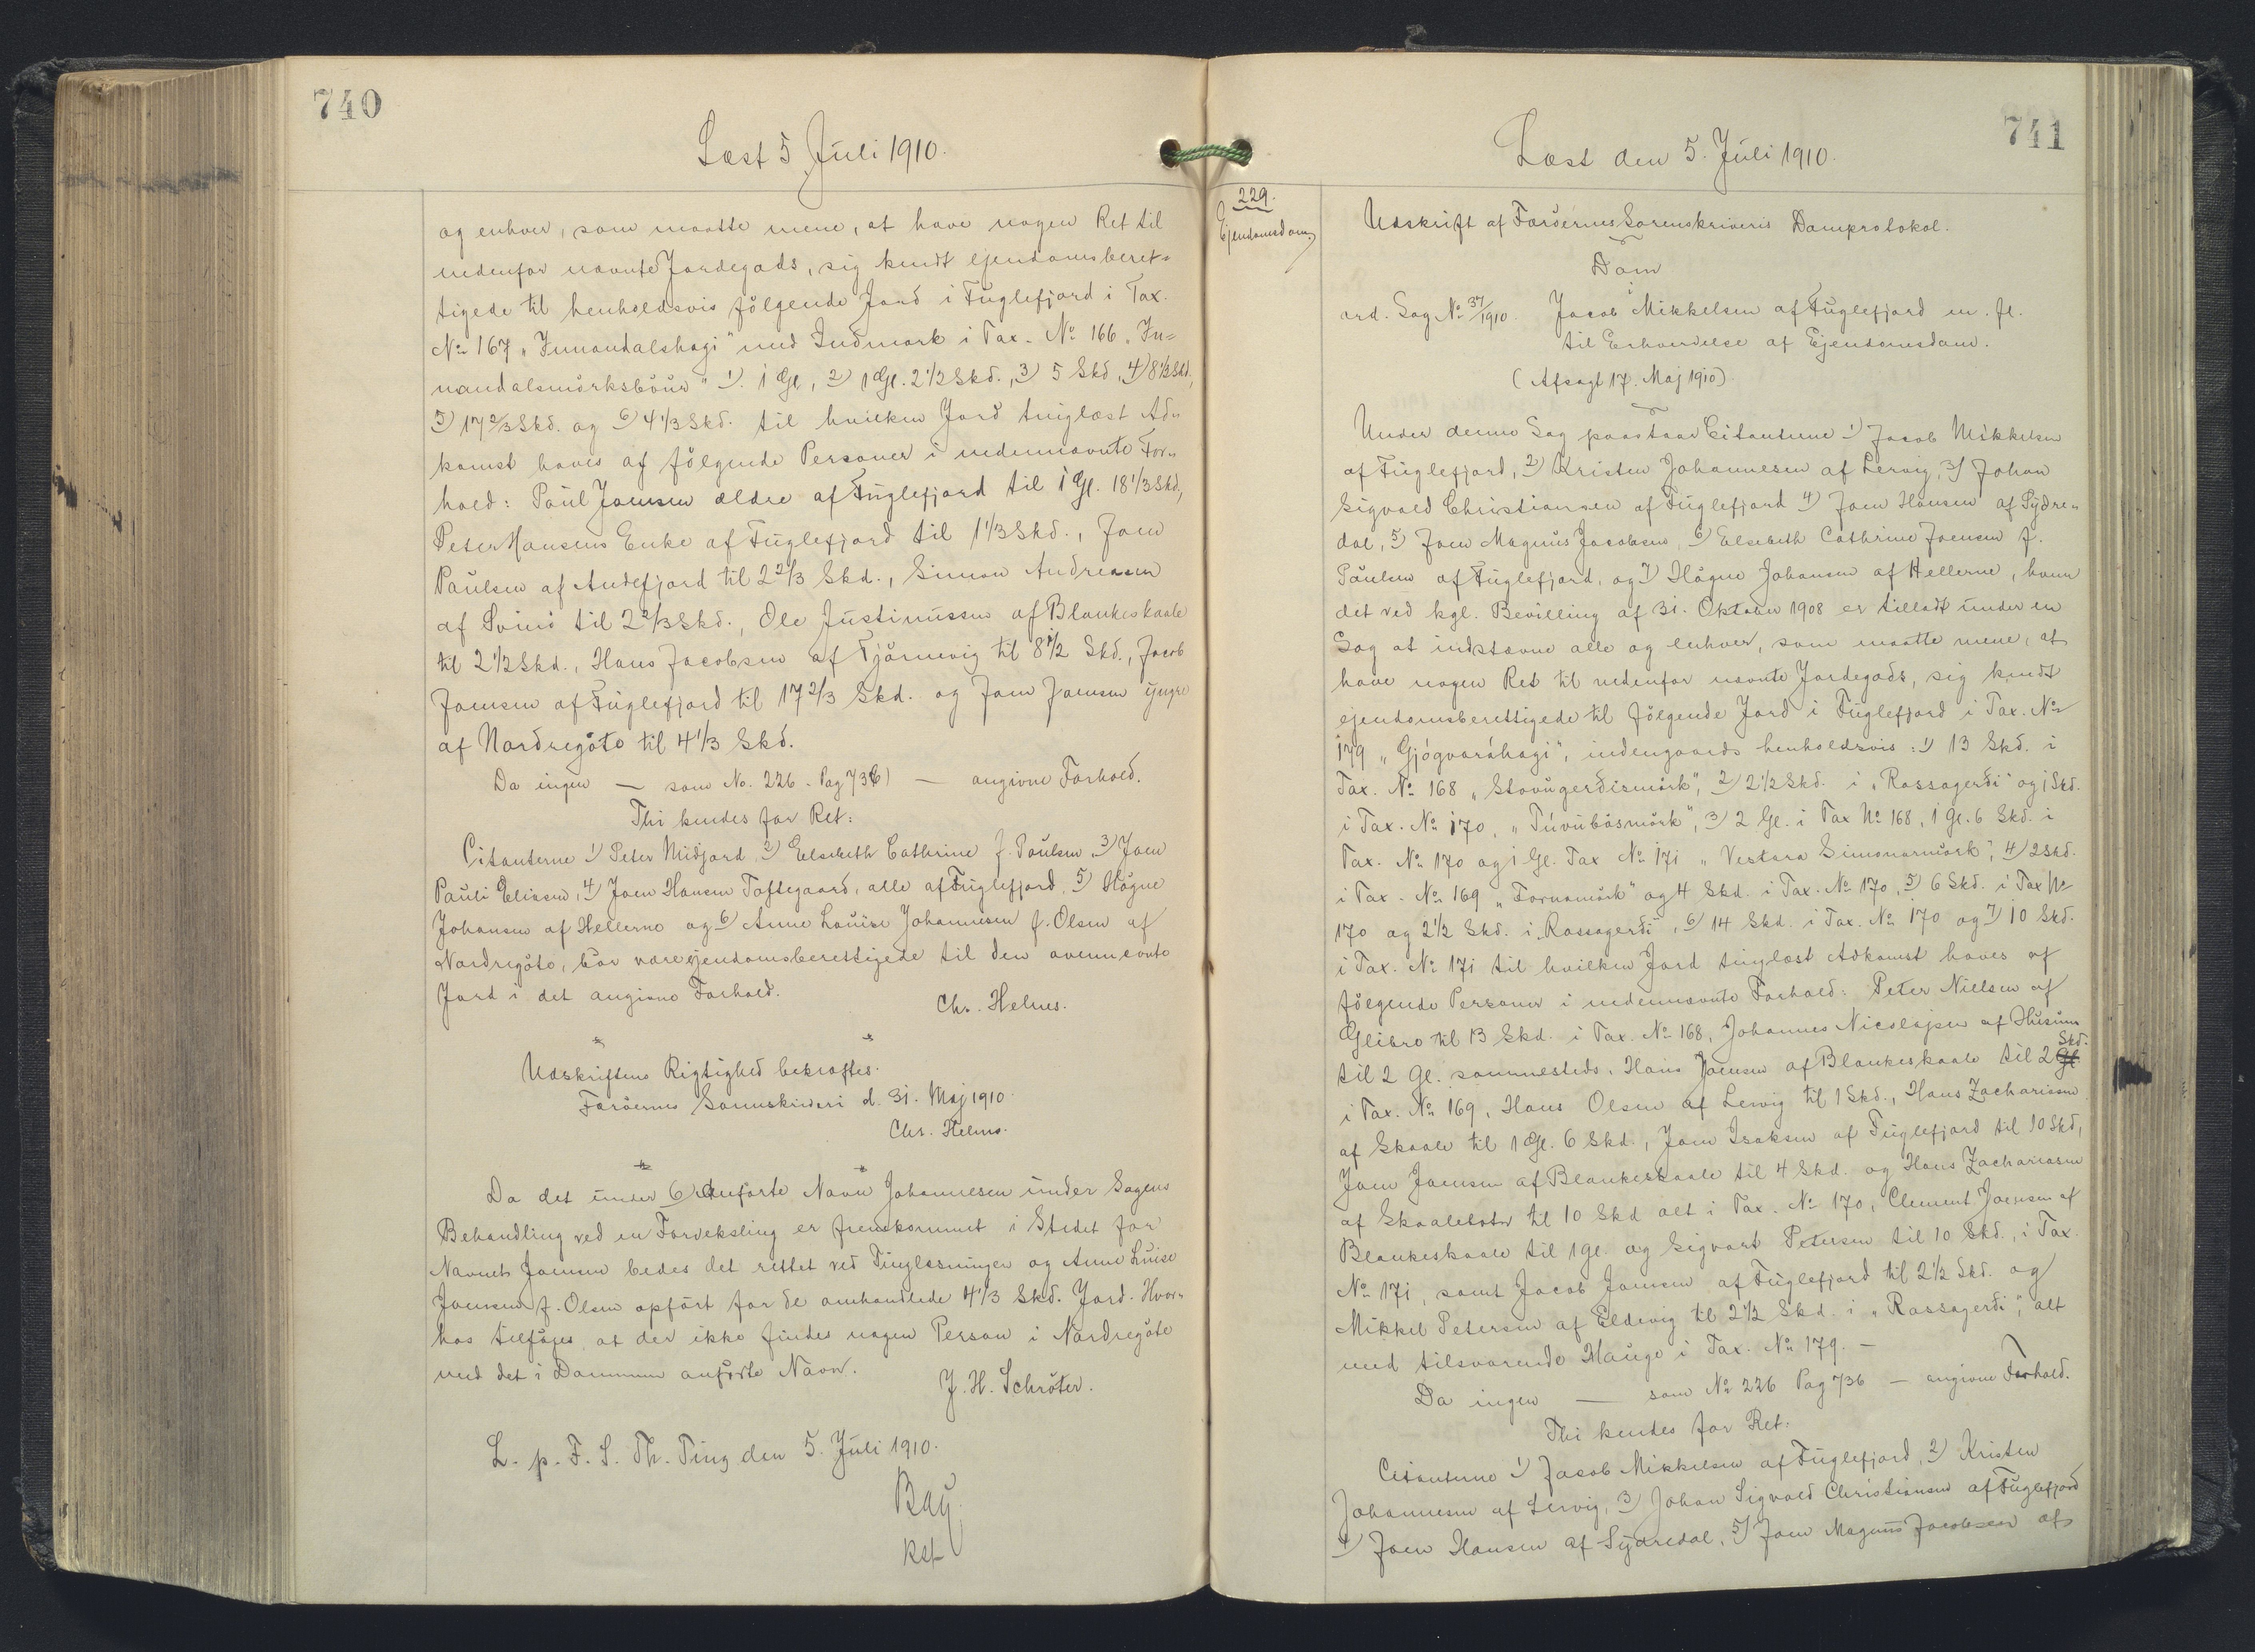 740
Læst 5 Juli 1910.
og enhver, som maatte mene, at have nogen Ret til
nedenfor nævnte Jordegods, sig kendt ejendomsberet-
tigede til henholdsvis følgende Jord i Fuglefjord i Tax.
No 167 „Innandalshagi" med Indmark i Tax. No 166 „In-
nandalsmørksbøur" 1) 1 Gl, 2) 1 Gl. 2 1/2 Skd., 3) 5 Skd, 4) 8 1/2 Skd,
5) 17 2/3 Skd. og 6) 4 1/3 Skd. til hvilken Jord tinglæst Ad-
komst haves af følgende Personer i nedennævnte For-
hold: Paul Joensen ældre af Fuglefjord til 1 Gl. 18 1/3 Skd,
Peter Hansens Enke af Fuglefjord til 1 1/3 Skd., Joen
Paulsen af Andefjord til 2 2/3 Skd., Simon Andreasen
af Svinø til 2 2/3 Skd., Ole Justinussen af Blankeskaale
til 2 1/2 Skd., Hans Jacobsen af Tjørnevig til 8 1/2 Skd., Jacob
Joensen af Fuglefjord til 17 2/3 Skd. og Joen Joensen yngre
af Nordregøte til 4 1/3 Skd.
Da ingen — som No. 226 - Pag 736) — angivne Forhold.
Thi kendes for Ret:
Citanterne 1) Peter Midjord, 2) Elsebeth Cathrine f. Poulsen, 3) Joen
Pauli Eliasen, 4) Joen Hansen Toftegaard, alle af Fuglefjord, 5) Høgne
Johansen af Hellerne og 6) Anne Louise Johannesen f. Olsen af
Nordregøte, bør være ejendomsberettigede til den ovennævnte
Jord i det angivne Forhold.
Chr. Helms.
Udskriftens Rigtighed bekræftes.
Færøernes Sorenskriveri d. 31. Maj 1910.
Chr. Helms.
Da det under 6) anførte Navn Johannesen under Sagens
Behandling ved en Forveksling er fremkommet i Stedet for
Navnet Joensen bedes det rettet ved Tinglæsningen og Anne Luise
Joensen f. Olsen opført for de omhandlede 4 1/3 Skd. Jord. Hvor-
hos tilføjes, at der ikke findes nogen Person i Nordregøte
med det i Dommen anførte Navn.
J. H. Schrøter.
L. p. F. S. Th. Ting den 5. Juli 1910.
Bay
Kst
741
Læst den 5. Juli 1910.
229.
Ejendomsdom
Udskrift af Færøernes Sorenskriveris Domprotokol.
Dom
i
ord. Sag No 37/1910. Jacob Mikkelsen af Fuglefjord m. fl.
til Erhvervelse af Ejendomsdom.
(Afsagt 17. Maj 1910)
Under denne Sag paastaar Citanterne 1) Jacob Mikkelsen
af Fuglefjord, 2) Kristen Johannesen af Lervig, 3) Johan
Sigvald Christiansen af Fuglefjord 4) Joen Hansen af Sydre-
dal, 5) Joen Magnus Jacobsen, 6) Elsebeth Cathrine Joensen f.
Paulsen af Fuglefjord, og 7) Høgne Johansen af Hellerne, hvem
det ved kgl. Bevilling af 31. Oktober 1908 er tilladt under en
Sag at indstævne alle og enhver, som maatte mene, at
have nogen Ret til nedenfor nævnte Jordegods, sig kendt
ejendomsberettigede til følgende Jord i Fuglefjord i Tax. No
179 „Gjógvaráhagi", indengaards henholdsvis: 1) 13 Skd. i
Tax. No 168 „Stovugerdismørk", 2) 2 1/2 Skd. i „Rossagerdi" og 1 Skd.
i Tax. No 170, „Túvubøsmørk", 3) 2 Gl. i Tax No 168, 1 Gl. 6 Skd. i
Tax. No 170 og 1 Gl. Tax No 171 „Vestara Simonarmørk", 4) 2 Skd.
i Tax. No 169 „Fornamørk" og 4 Skd. i Tax. No 170, 5) 6 Skd. i Tax No
170 og 2 1/2 Skd. i „Rossagerdi", 6) 14 Skd. i Tax. No 170 og 7) 10 Skd.
i Tax. No 171 til hvilken Jord tinglæst Adkomst haves af
følgende Personer i nedennævnte Forhold: Peter Nillsen af
Glibre til 13 Skd. i Tax. No 168, Johannes Nicolajsen af Husum
til 2 Gl. sammesteds, Hans Joensen af Blankeskaale til 2 Gl. Skd.
i Tax. No 169, Hans Olsen af Lervig til 1 Skd., Hans Zachariasen
af Skaale til 1 Gl. 6 Skd., Joen Isaksen af Fuglefjord til 10 Skd,
Joen Joensen af Blankeskaale til 4 Skd. og Hans Zachariasen
af Skaalebotn til 10 Skd alt i Tax. No 170, Clement Joensen af
Blankeskaale til 1 Gl. og Sigvart Petersen til 10 Skd., i Tax.
No 171, samt Jacob Joensen af Fuglefjord til 2 1/2 Skd. og
Mikkel Petersen af Eldevig til 2 1/2 Skd. i „Rossagerdi", alt
med tilsvarende Hauge i Tax. No 179. —
Da ingen — som No 226 Pag 736 — angivne Forhold.
Thi kendes for Ret:
Citanterne 1) Jacob Mikkelsen af Fuglefjord, 2) Kristen
Johannesen af Lervig, 3) Johan Sigvald Christiansen af Fuglefjord
4) Joen Hansen af Sydredal, 5) Joen Magnus Jacobsen af